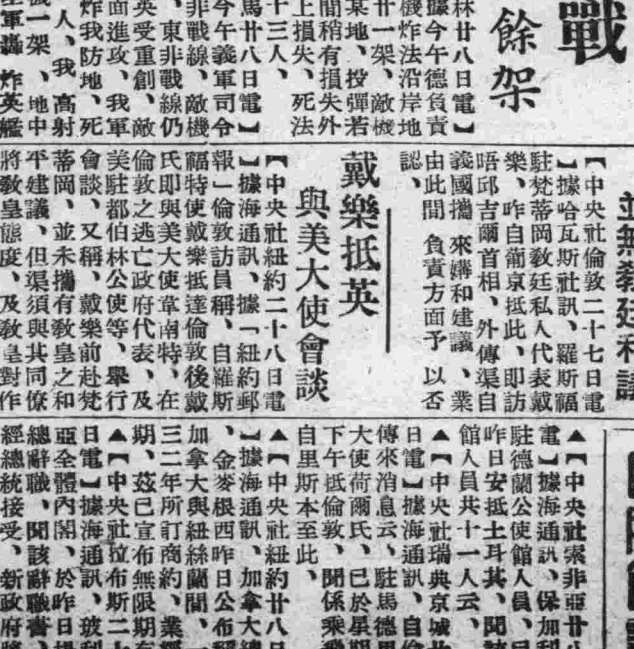 戰
餘架
林廿八日電】
據今午德負責
機炸法沿岸地
廿一架、敵機
某地、投彈若
間稍有損失外
上損失、死法
十三人、
馬廿八日電】
今午義軍司令
非戰線、敵機
、東非戰線仍
英受重創、敵
面進攻、我軍
炸我防地、死
人、我高射
機一架、地中
軍轟炸英艦
並無教廷和議
【中央社倫敦二十七日電
】據哈瓦斯社訊、羅斯福
駐梵蒂岡教廷私人代表戴
樂、昨自葡京抵此、即訪
晤邱吉爾首相、外傳渠自
義國攜來媾和建議、業
由此間負責方面予以否
認、
戴樂抵英
與美大使會談
【中央社紐約二十八日電
】據海通訊、據「紐約郵
報」倫敦訪員稱、自羅斯
福特使戴樂抵達倫敦後戴
氏即與美大使韋南特、在
倫敦之逃亡政府代表、及
美駐都伯林公使等、舉行
會談、又稱、戴樂前赴梵
蒂岡、並未攜有教皇之和
平建議、但渠須與其同僚
將教皇態度、及教皇對作
▲【中央社索非亞廿八
電】據海通訊、保加利
駐德蘭公使館人員、已
昨日安抵土耳其、聞該
館人員共十一人云、
▲【中央社瑞典京城廿
日電】據海通訊、自倫
傳來消息云、駐馬德里
大使荷爾氏、已於星期
下午抵倫敦、聞係乘飛
自里斯本至此、
▲【中央社紐約廿八日
】據海通訊、加拿大總
、金麥根西昨日公布稱
加拿大與紐絲蘭間、一
三二年所訂商約、業經
期、茲已宣布無限期
▲【中央社拉布斯二
日電】據海通訊、玻利
亞全體內閣、於昨日提
總辭職、聞該辭職書、
經總統接受、新政府將